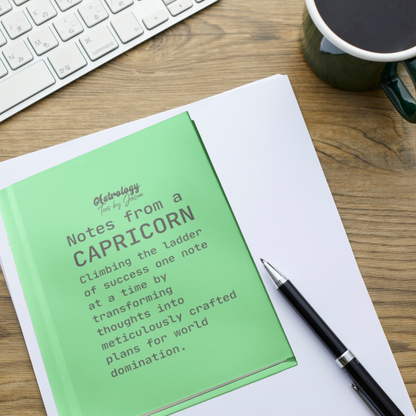 Astrology
Tees by Jason
Notes from a
CAPRICORN
Climbing the ladder
of success one note
at a time by
transforming
thoughts into
meticulously crafted
plans for world
domination.